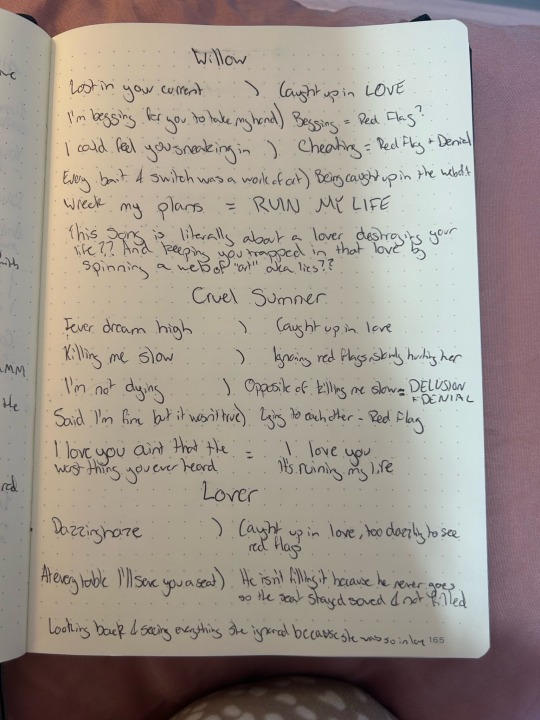 Willow
Lost in your current ) Caught up in LOVE
I'm begging for you to take my hand) Begging = Red Flag?
I could feel you sneaking in ) Cheating = Red Flag + Denial
Every bait & switch was a work of art) Being caught up in the web of it
Wreck my plans = RUIN MY LIFE
This song is literally about a lover destroying your
life?? And keeping you trapped in that love by
spinning a web of "art" aka lies??
Cruel Summer
Fever dream high ) Caught up in love
Killing me slow ) Ignoring red flags, slowly hurting her
I'm not dying ) Opposite of killing me slow = DELUSION
+ DENIAL
Said I'm fine but it wasn't true) Lying to each other - Red Flag
I love you aint that the = I love you
worst thing you ever heard It's ruining my life
Lover
Dazzling haze ) Caught up in love, too dazzly to see
red flags
At every table I'll save you a seat) He isn't filling it because he never goes
so the seat stayed saved & not filled
Looking back & seeing everything she ignored because she was so in love
165